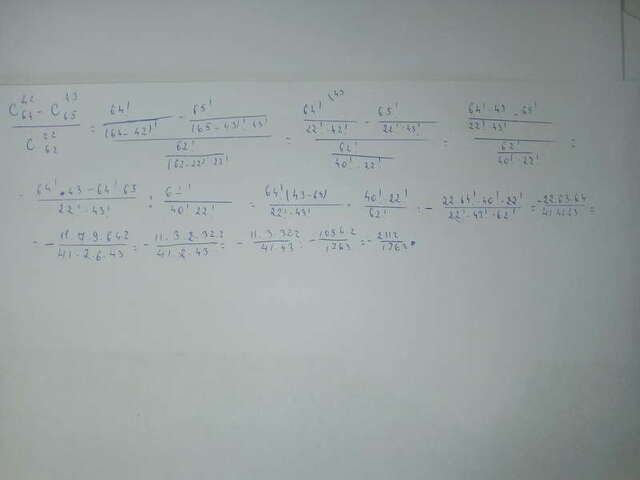 (C_64^42 - C_65^43) / C_62^22 = (64! / (64-42)! - 65! / (65-43)! · 43!) / (62! / (62-22)! · 22!) = (64! \43 / 22! · 42! - 65! / 22! · 43!) / (62! / 40! · 22!) = ((64! · 43 - 65!) / 22! 43!) / (62! / 40! · 22!) =
64! · 43 - 64! 65 / 22! · 43! : 62! / 40! 22! = 64! (43-65) / 22! · 43! · 40! · 22! / 62! = - 22 · 64! · 40! · 22! / 22! · 43! · 62! =
= - / 41 · 2 · 6 · 43 = - 11 · 3 · 2 · 32 2 / 41 · 2 · 43 = - 11 · 3 · 32 2 / 41 · 43 = - 1056 · 2 / 1763 = - 2112 / 1763 .